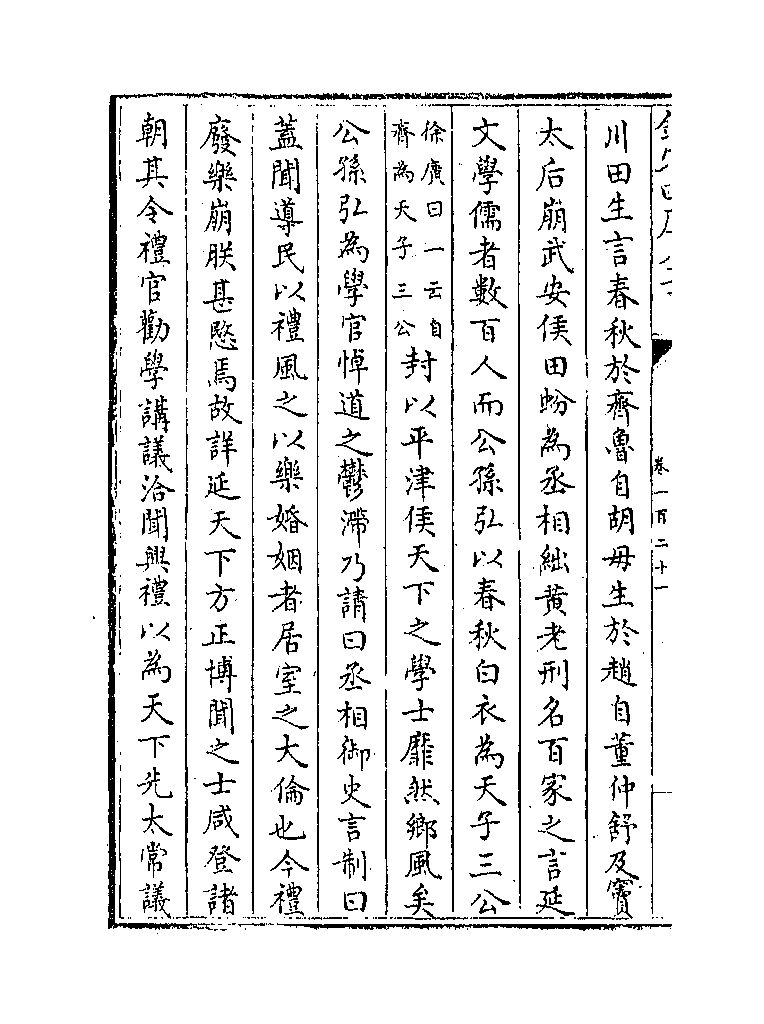 川田生言春秋於齊魯自胡毋生於趙自董仲舒及竇
太后崩武安侯田蚡為丞相絀黃老刑名百家之言延
文學儒者數百人而公孫弘以春秋白衣為天子三公
徐廣曰一云自
齊為天子三公
封以平津侯天下之學士靡然鄉風矣
公孫弘為學官悼道之鬱滯乃請曰丞相御史言制曰
蓋聞導民以禮風之以樂婚姻者居室之大倫也今禮
廢樂崩朕甚愍焉故詳延天下方正博聞之士咸登諸
朝其令禮官勸學講議洽聞興禮以為天下先太常議
卷一百二十一